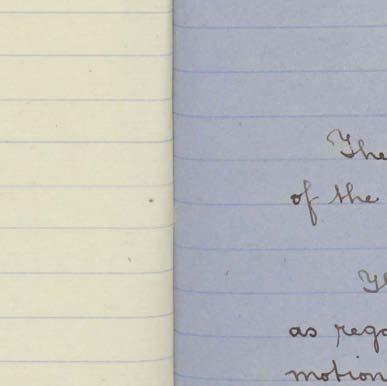 The
of the
as rega
motion